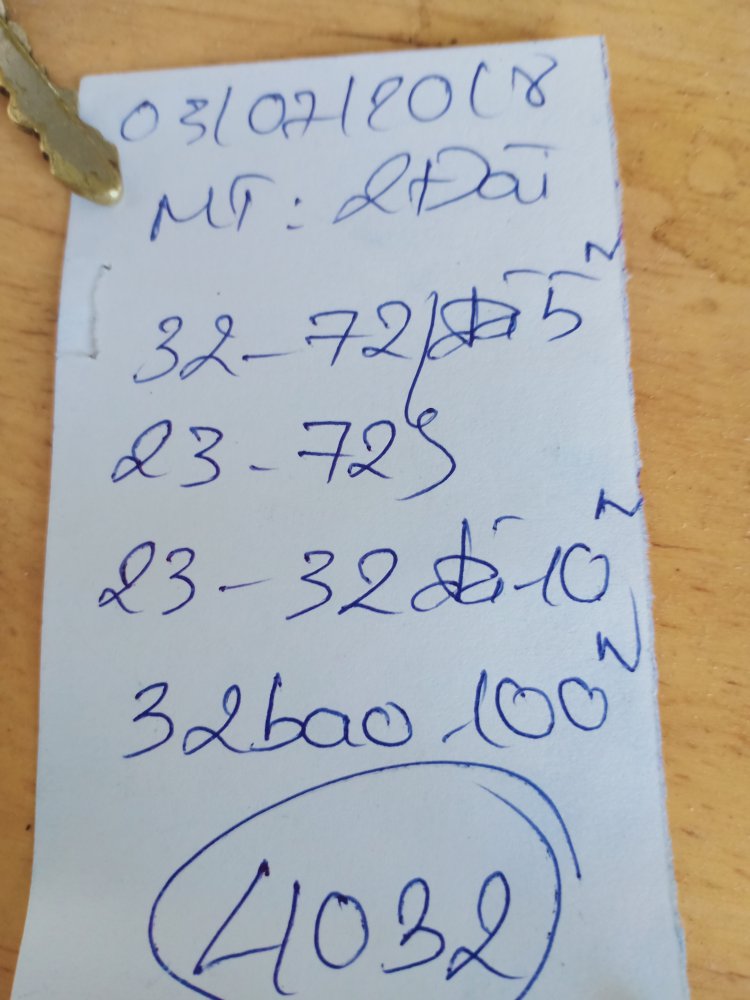 03/07/2018
MT: 2Đài
32-72 đá 5ⁿ
23-72
23-32 đá 10ⁿ
32bao 100ⁿ
4032